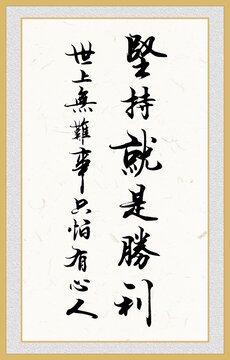 堅持就是勝利
世上無難事只怕有心人